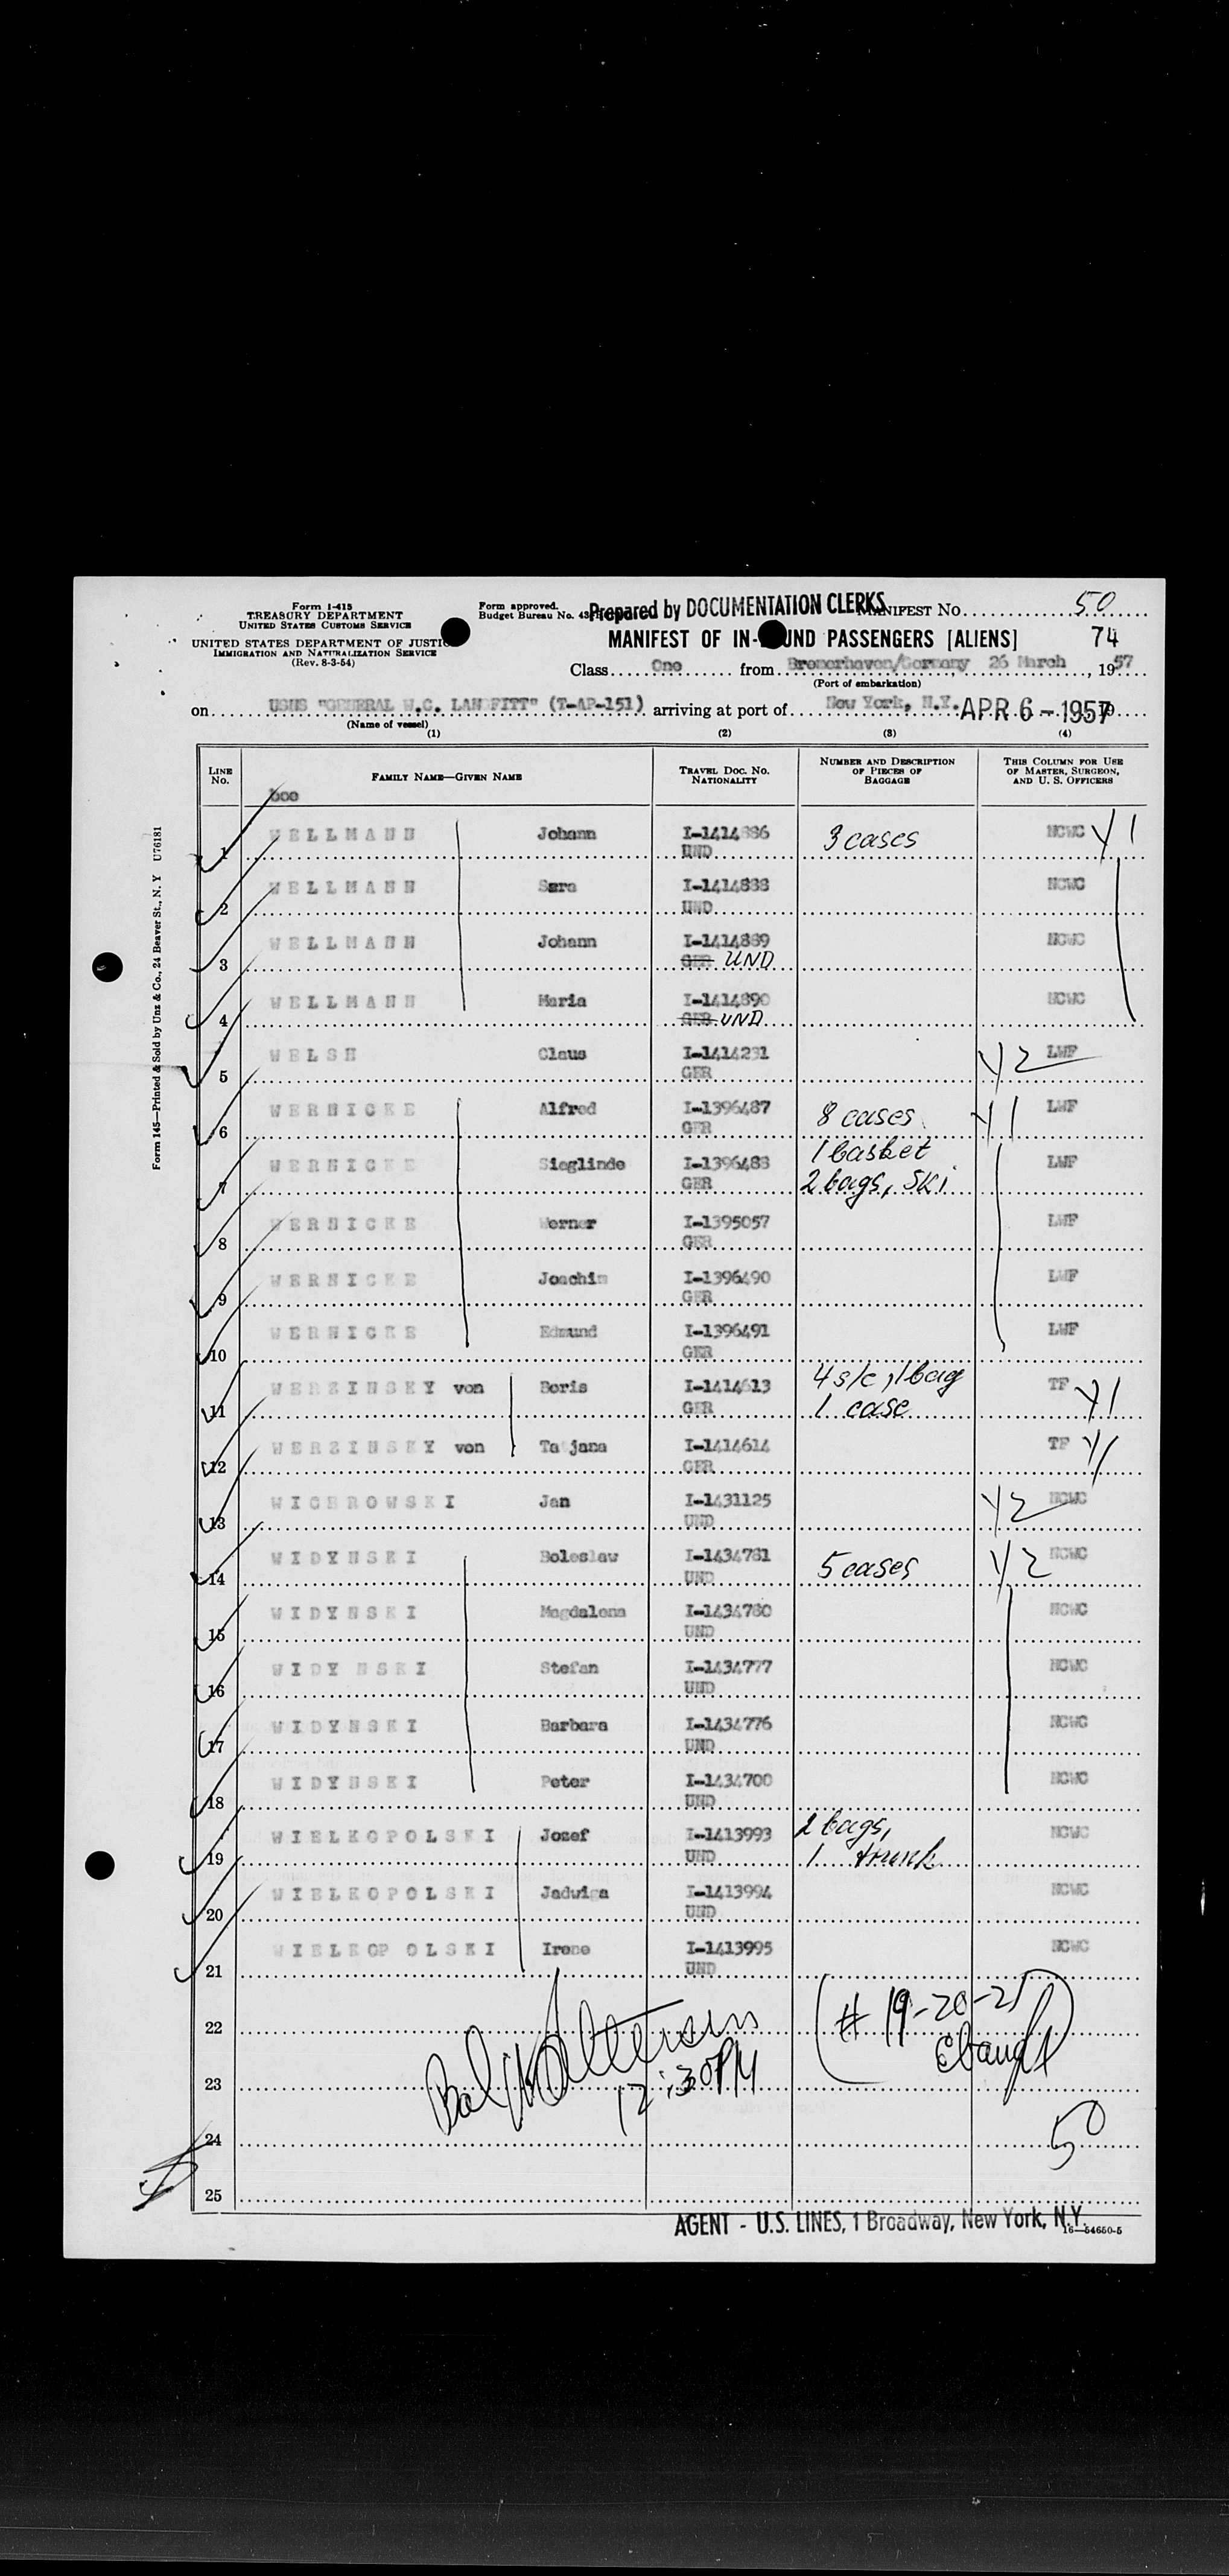 Form I-415
TREASURY DEPARTMENT
UNITED STATES CUSTOMS SERVICE
UNITED STATES DEPARTMENT OF JUSTIC
IMMIGRATION AND NATURALIZATION SERVICE
(Rev. 8-3-54)
Form approved.
Budget Bureau No. 43
Prepared by DOCUMENTATION CLERKS
MANIFEST No. 50
MANIFEST OF IN- UND PASSENGERS [ALIENS] 74
Class One from Bremerhaven/Germany 26 March, 1957
(Port of embarkation)
on USNS "GENERAL W.C. LANGFITT" (T-AP-151) arriving at port of New York, N.Y. APR 6 - 1957
(Name of vessel)
(1) (2) (3) (4)
LINE No. FAMILY NAME—GIVEN NAME TRAVEL DOC. No. NATIONALITY NUMBER AND DESCRIPTION OF PIECES OF BAGGAGE THIS COLUMN FOR USE OF MASTER, SURGEON, AND U. S. OFFICERS
1 WELLMANN Johann I-1414886 UND 3 cases NCWC Y1
2 WELLMANN Sara I-1414888 UND NCWC
3 WELLMANN Johann I-1414889 GER UND NCWC
4 WELLMANN Maria I-1414890 GER UND NCWC
5 WELSH Claus I-1414231 GER Y2 LWF
6 WERNICKE Alfred I-1396487 GER 8 cases Y1 LWF
7 WERNICKE Sieglinde I-1396488 GER 1 basket 2 bags, Ski LWF
8 WERNICKE Werner I-1395057 GER LWF
9 WERNICKE Joachim I-1396490 GER LWF
10 WERNICKE Edmund I-1396491 GER LWF
11 WERZINSKY von Boris I-1414613 GER 4 s/c, 1 bag 1 case TF Y1
12 WERZINSKY von Tatjana I-1414614 GER TF Y1
13 WICBROWSKI Jan I-1431125 UND Y2 NCWC
14 WIDYNSKI Boleslaw I-1434781 UND 5 cases Y2 NCWC
15 WIDYNSKI Magdalena I-1434780 UND NCWC
16 WIDYNSKI Stefan I-1434777 UND NCWC
17 WIDYNSKI Barbara I-1434776 UND NCWC
18 WIDYNSKI Peter I-1434700 UND NCWC
19 WIELKOPOLSKI Jozef I-1413993 UND 2 bags, 1 trunk NCWC
20 WIELKOPOLSKI Jadwiga I-1413994 UND NCWC
21 WIELKOPOLSKI Irene I-1413995 UND NCWC
22 (# 19-20-21
23 12:30PM
24 50
25
AGENT - U.S. LINES, 1 Broadway, New York, N.Y.
16—54650-5
Form 145—Printed & Sold by Unz & Co., 24 Beaver St., N. Y U76181